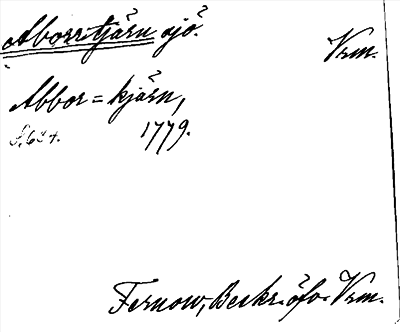 Aborrtjärn sjö. Vrm.
Abbor=kjärn,
S. 634. 1779.
Fernow, Beskr. öfv. Vrm.